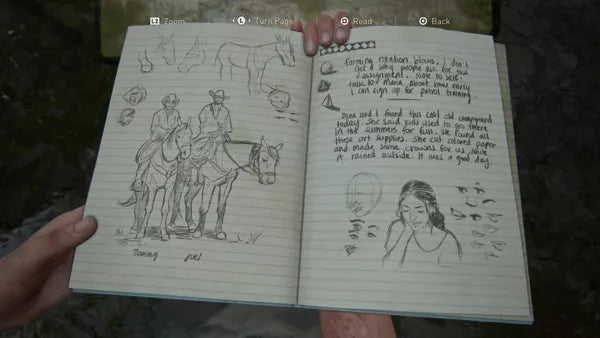 L2 Zoom L Turn Page Read Back
farming rotation blows. I don't
get why people ask for this
assignment. Note to self:
talk to Maria about how early
I can sign up for patrol training.
Dina and I found this cool old campground
today. She said kids used to go there
in the summers for fun. We found all
these art supplies. She cut colored paper
and made some crowns for us while
it rained outside. It was a good day.
Tommy Joel